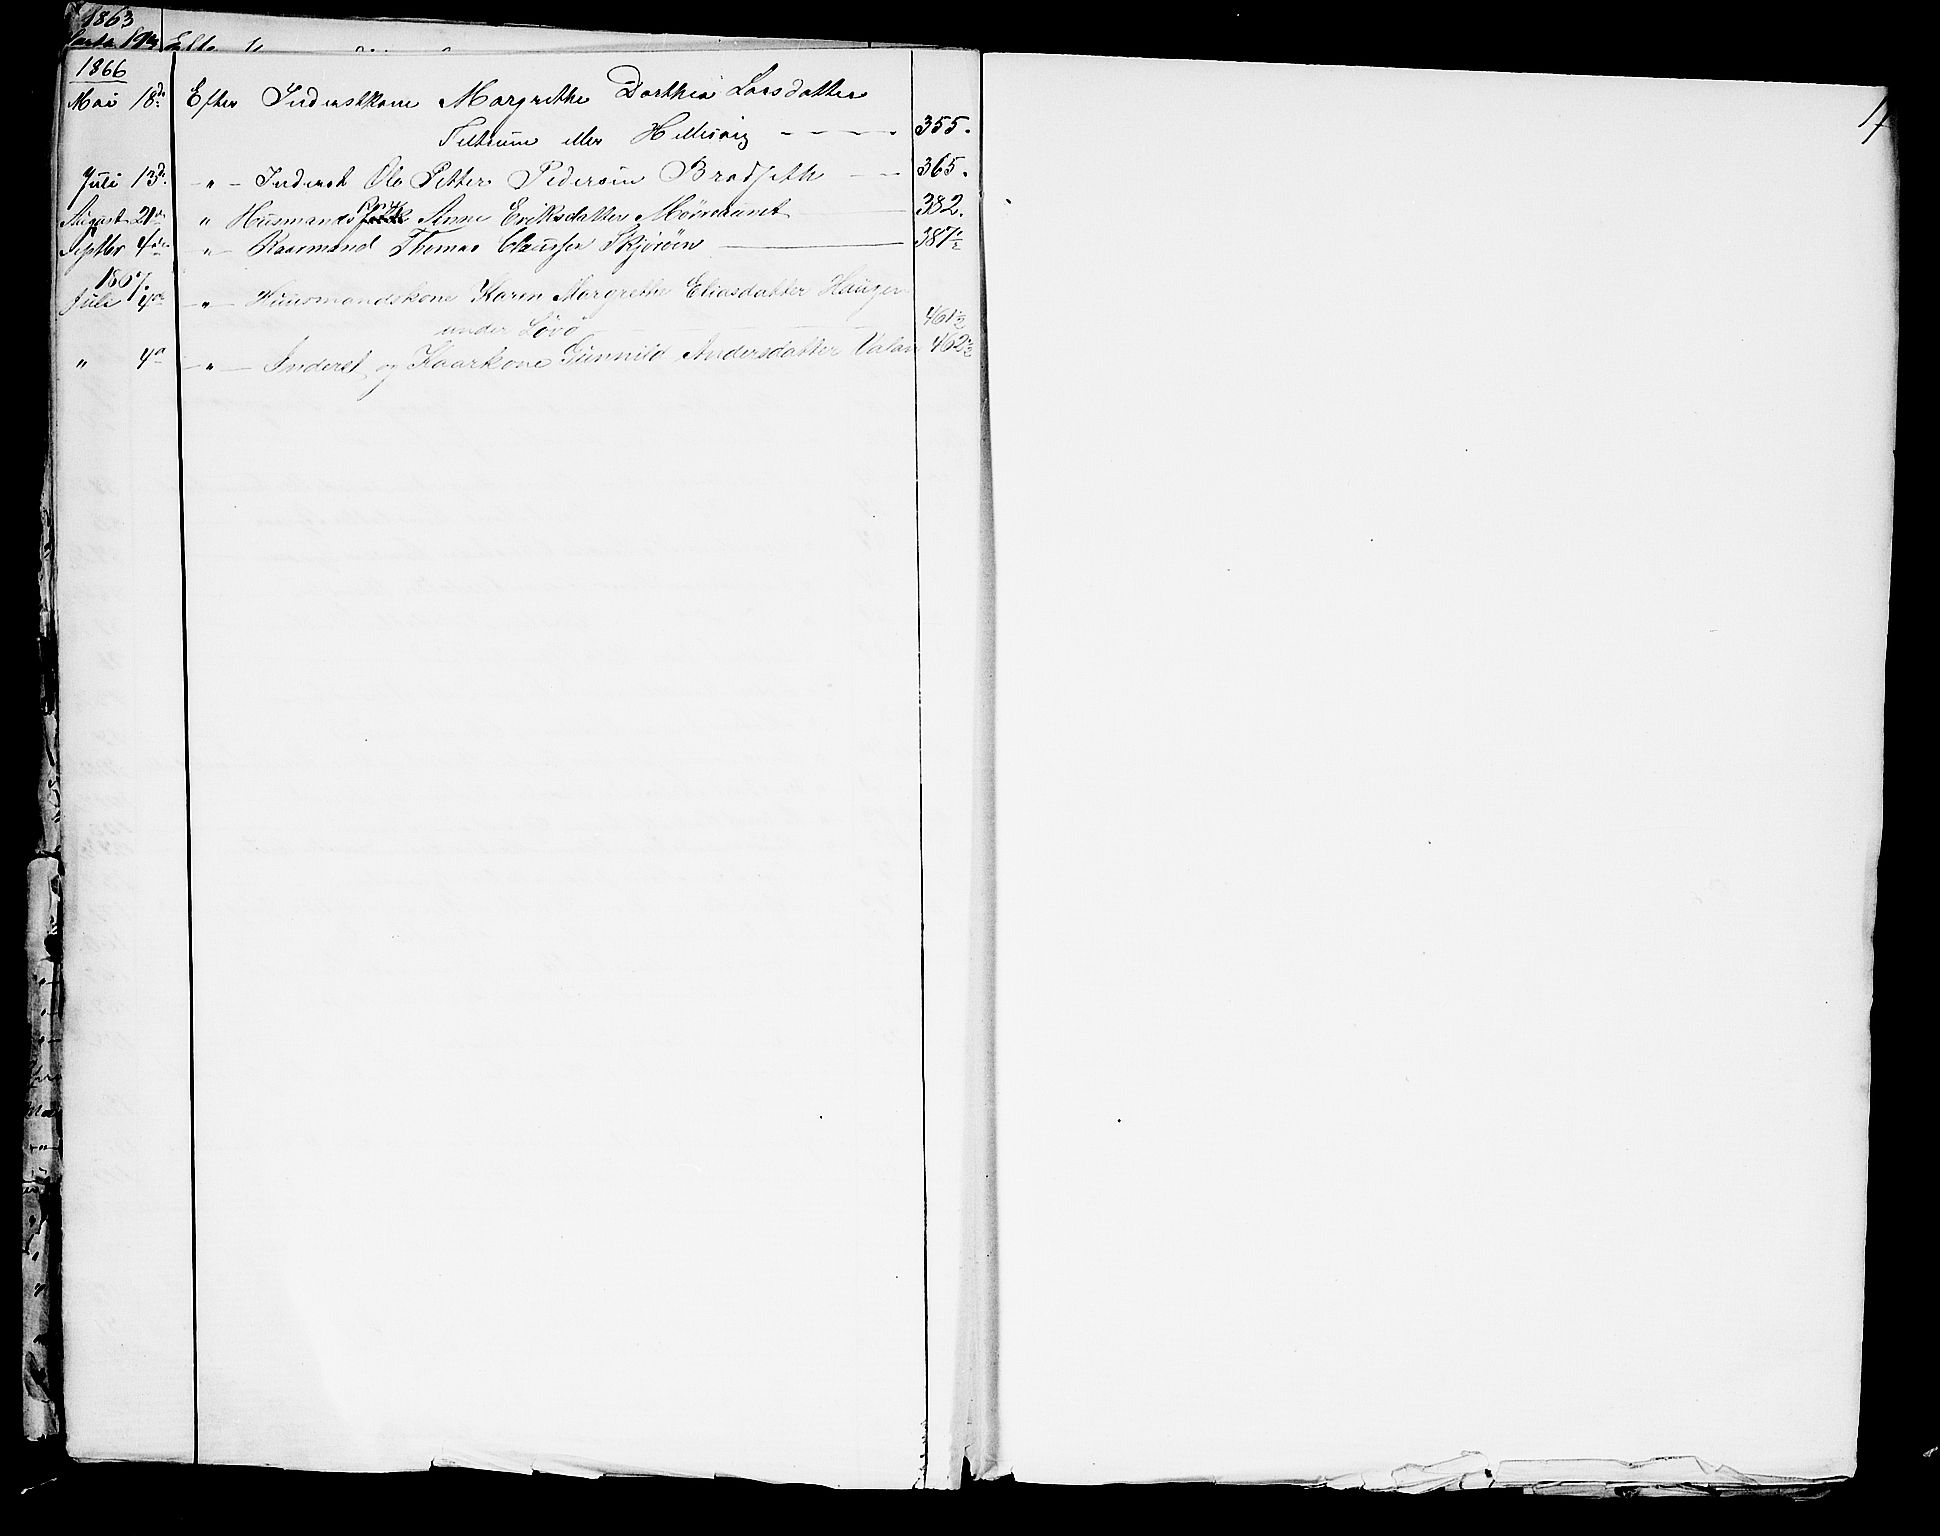 1863
1866
Mai 18de Efter Inderstkone Margrethe Dorthea Larsdatter
Teltrum eller Hellesvig - - - - 355.
Juli 13de - " - Inderst Ole Petter Pedersen Bradseth - - 365.
August 21de " Husmands Anne Eriksdatter 382.
Septbr 4de " - Kaarmand Thomas Claussen Skjøröen 387½
1867.
Juli 4de - " - Huusmandskone Karen Margrethe Eliasdatter Haugen
under Lövö - - - - - 461½
" 4de - " - Inderst og Kaarkone Gunnild Andersdatter Valan 462½
17